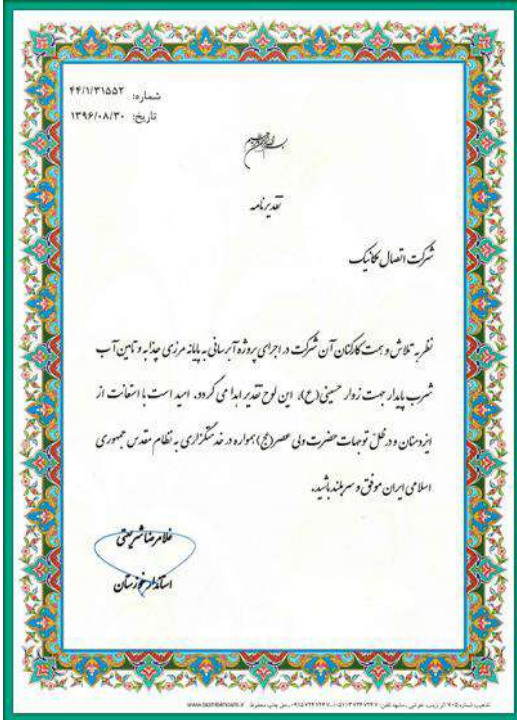 شماره: ۴۴/۱/۳۱۵۵۲
تاریخ: ۱۳۹۶/۰۸/۳۰
بسم الله الرحمن الرحیم
تقدیرنامه
شرکت اتصال مکانیک
نظر به تلاش و همت کارکنان آن شرکت در اجرای پروژه آبرسانی به پایانه مرزی چذابه و تامین آب
شرب پایدار جهت زوار حسینی (ع)، این لوح تقدیر اهدا می گردد. امید است با استعانت از
ایزد منان و در ظل توجهات حضرت ولی عصر (عج) همواره در خدمتگزاری به نظام مقدس جمهوری
اسلامی ایران موفق و سربلند باشید.
غلامرضا شریعتی
استاندار خوزستان